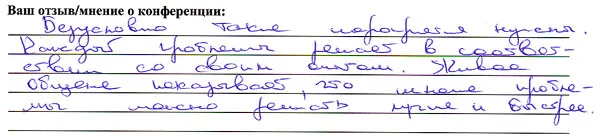 Ваш отзыв/мнение о конференции:
Безусловно такие мероприятия нужны.
Каждый проблемы решает в соответ-
ствии со своим опытом. Живое
общение показывает, что многие пробле-
мы можно решать лучше и быстрее.